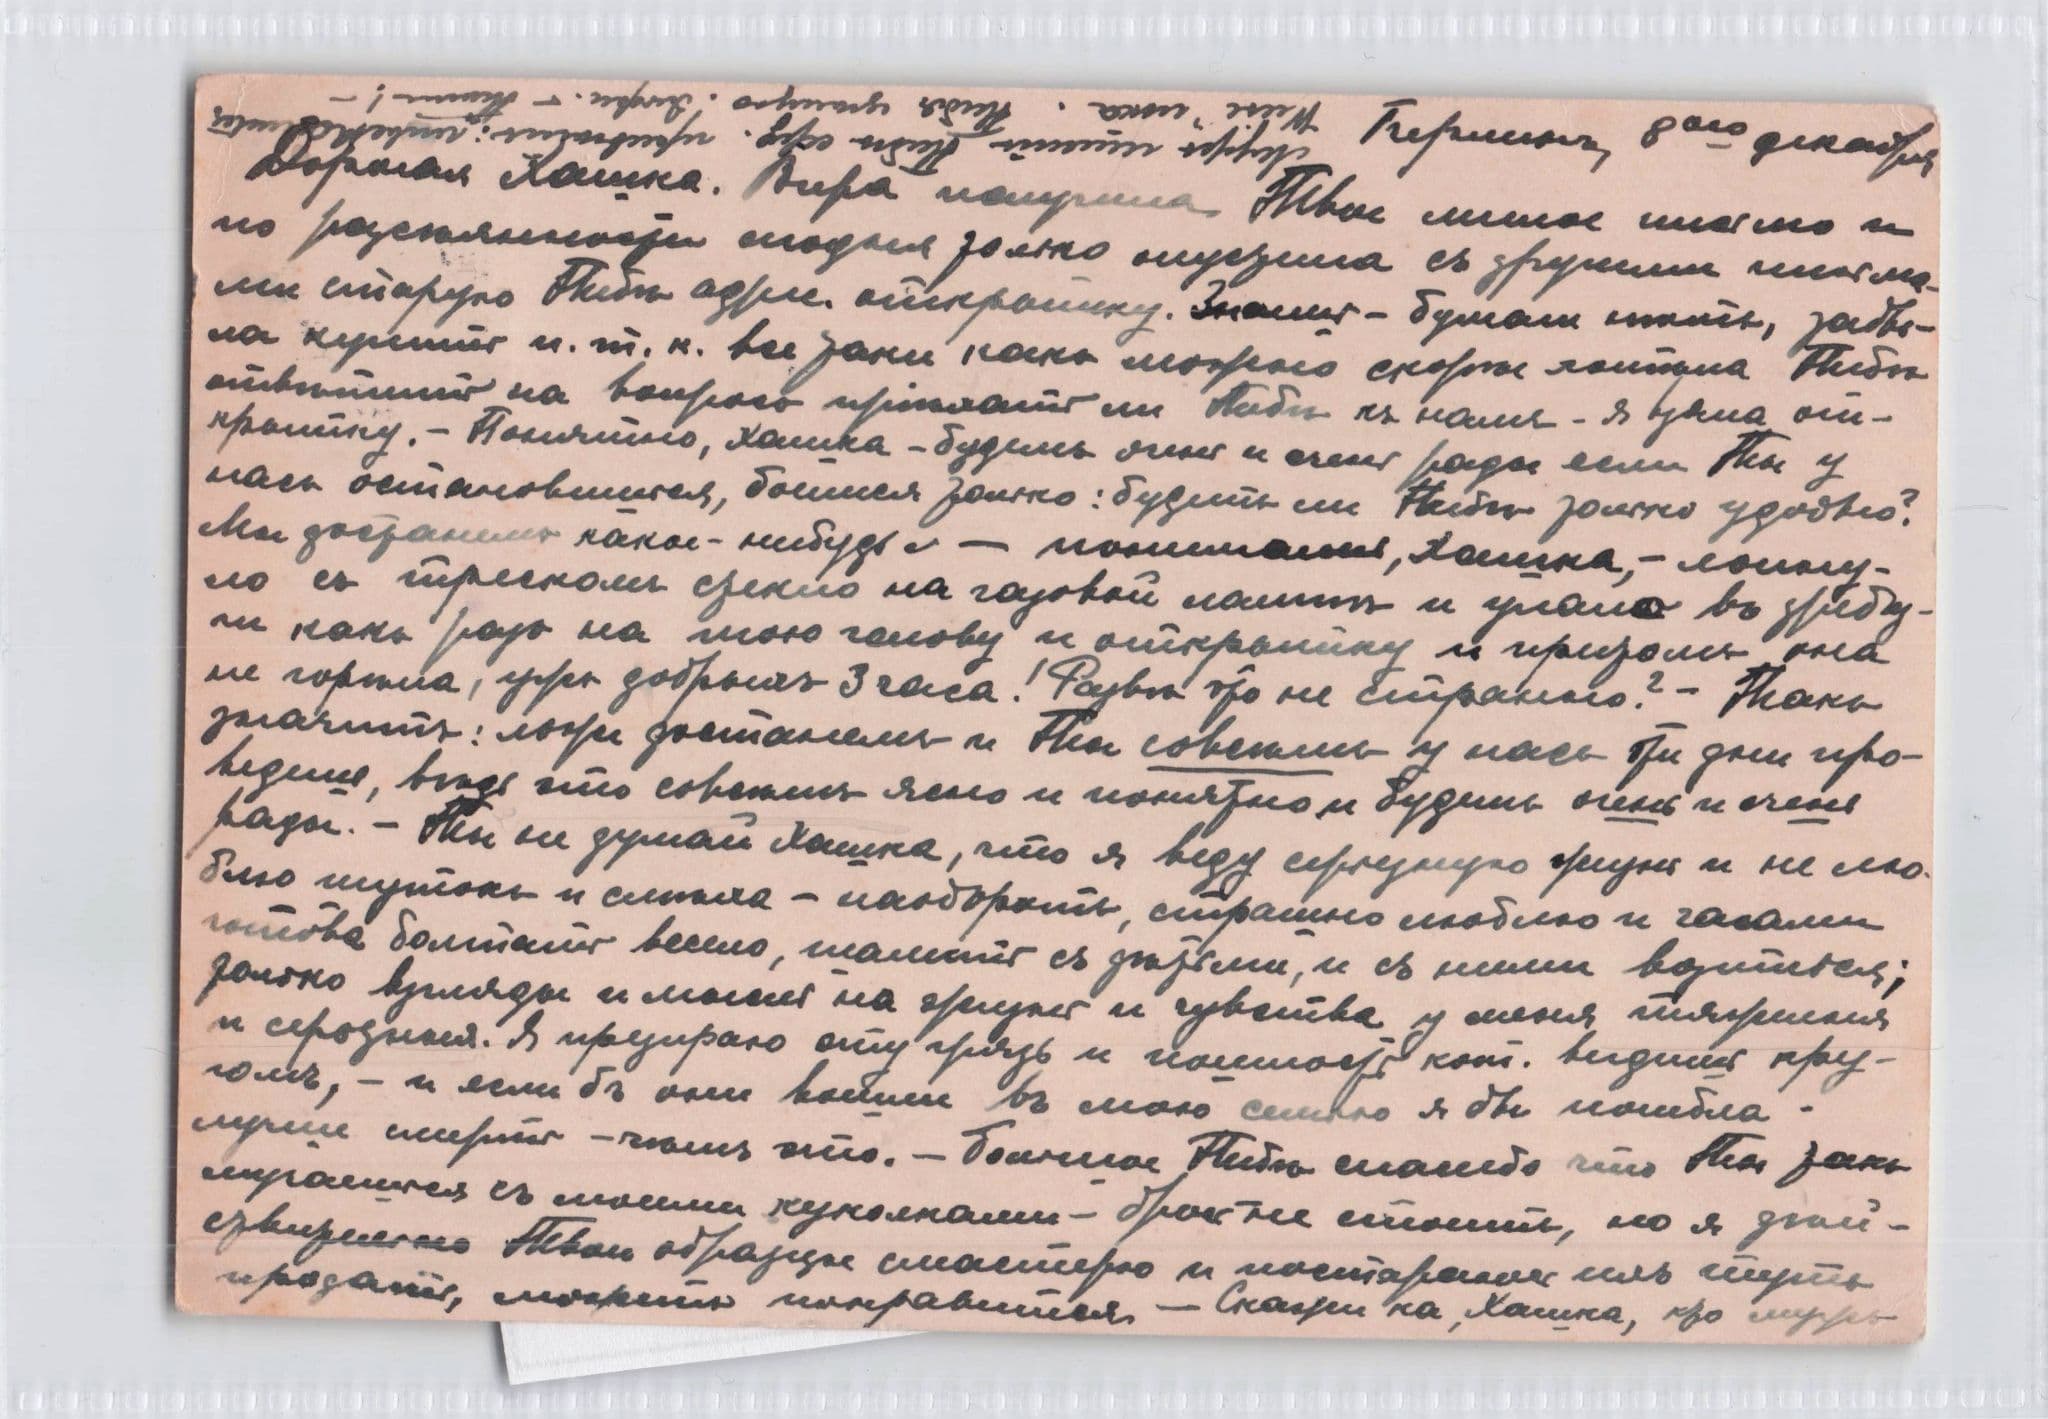 8ого декабря
Дорогая Хашка. Вчера получила Твое милое письмо и
по разсеянности сегодня только опустила съ другими письма-
ми старую Тебѣ адрес. открытку. Знаешь – бумаги нѣтъ, забы-
ла купить и. т. к. все таки какъ можно скорѣе хотѣла Тебѣ
отвѣтить на вопросъ приѣхать ли Тебѣ къ намъ – я взяла от-
крытку. – Понятно, Хашка – будемъ очень и очень рады если Ты у
насъ остановишься, боимся только: будетъ ли Тебѣ только удобно?
Мы достанемъ какое-нибудь – понимаешь, Хашка, – лопну-
ло съ трескомъ стекло на газовой лампѣ и упало въ дребез-
ги какъ разъ на мою голову и открытку и притомъ она
не горѣла, ужъ добрыхъ 3 часа! Развѣ это не странно? – Такъ
значитъ: ложе достанемъ и Ты совсѣмъ у насъ эти дни про-
ведешь, вѣдь это совсѣмъ ясно и понятно и будемъ очень и очень
рады. – Ты не думай Хашка, что я веду серьезную жизнь и не лю-
блю шутокъ и смѣха – наоборотъ, страшно люблю и часами
готова болтать весело, шалить съ дѣтьми, и съ ними возиться;
только взгляды и мысли на жизнь и чувства у меня тяжелыя
и серьезныя. Я презираю эту грязь и пошлость кот. видишь кру-
гомъ, – и если бъ они вошли въ мою семью я бы погибла –
лучше смерть – чѣмъ это. – Большое Тебѣ спасибо что Ты такъ
мучаешься съ моими куколками – не стоитъ, но я дѣй-
ствительно Твои образцы смастерю и постараюсь ихъ тутъ
продать, можетъ понравится – Скажи ка, Хашка, кто мужъ